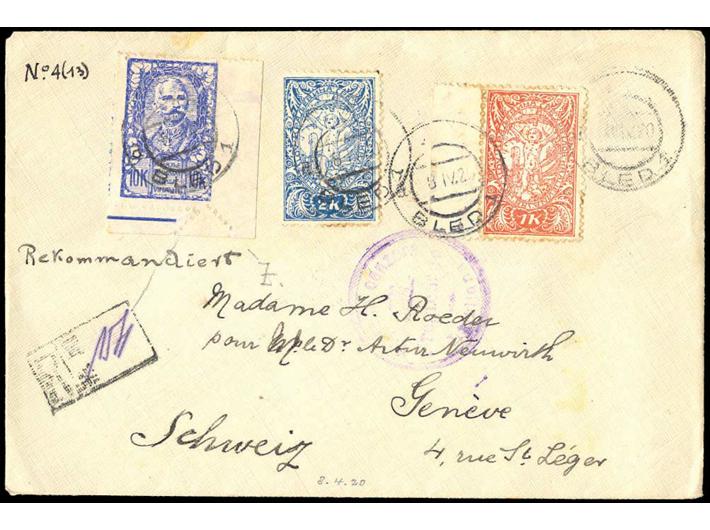 No 4(13)
10K
BLED 1
2K
8 IV.20
BLED 1
1K
BLED 1
Rekommandiert
Z.
Madame H. Roeder
pour Dr Artur Neuwirth
Genève
Schweiz
4, rue St. Léger
8.4.20